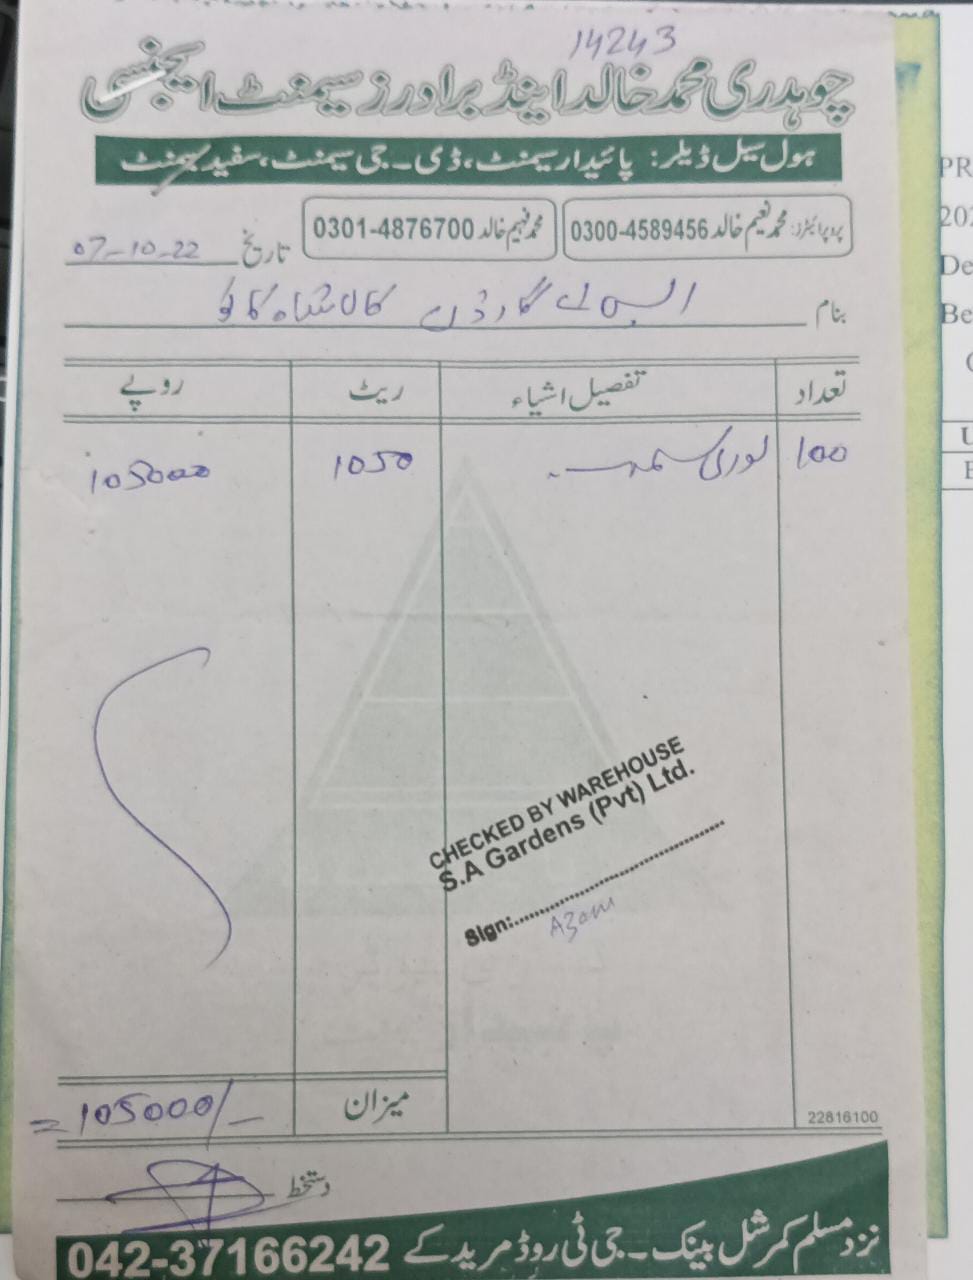 14243
چوہدری محمد خالد اینڈ برادرز سیمنٹ ایجنسی
ہول سیل ڈیلر: پائیدار سیمنٹ، ڈی۔جی سیمنٹ، سفید سیمنٹ
پروپرائیٹرز: محمد نعیم خالد 0300-4589456 محمد فہیم خالد 0301-4876700
تاریخ 07-10-22
بنام ایس اے گارڈن کالا شاہ کاکو
تعداد تفصیل اشیاء ریٹ روپے
100 لوری سیمنٹ 1050 105000
CHECKED BY WAREHOUSE
S.A Gardens (Pvt) Ltd.
Sign:.......... Azam
میزان = 105000/-
22816100
دستخط
نزد مسلم کمرشل بینک۔ جی ٹی روڈ مریدکے 042-37166242